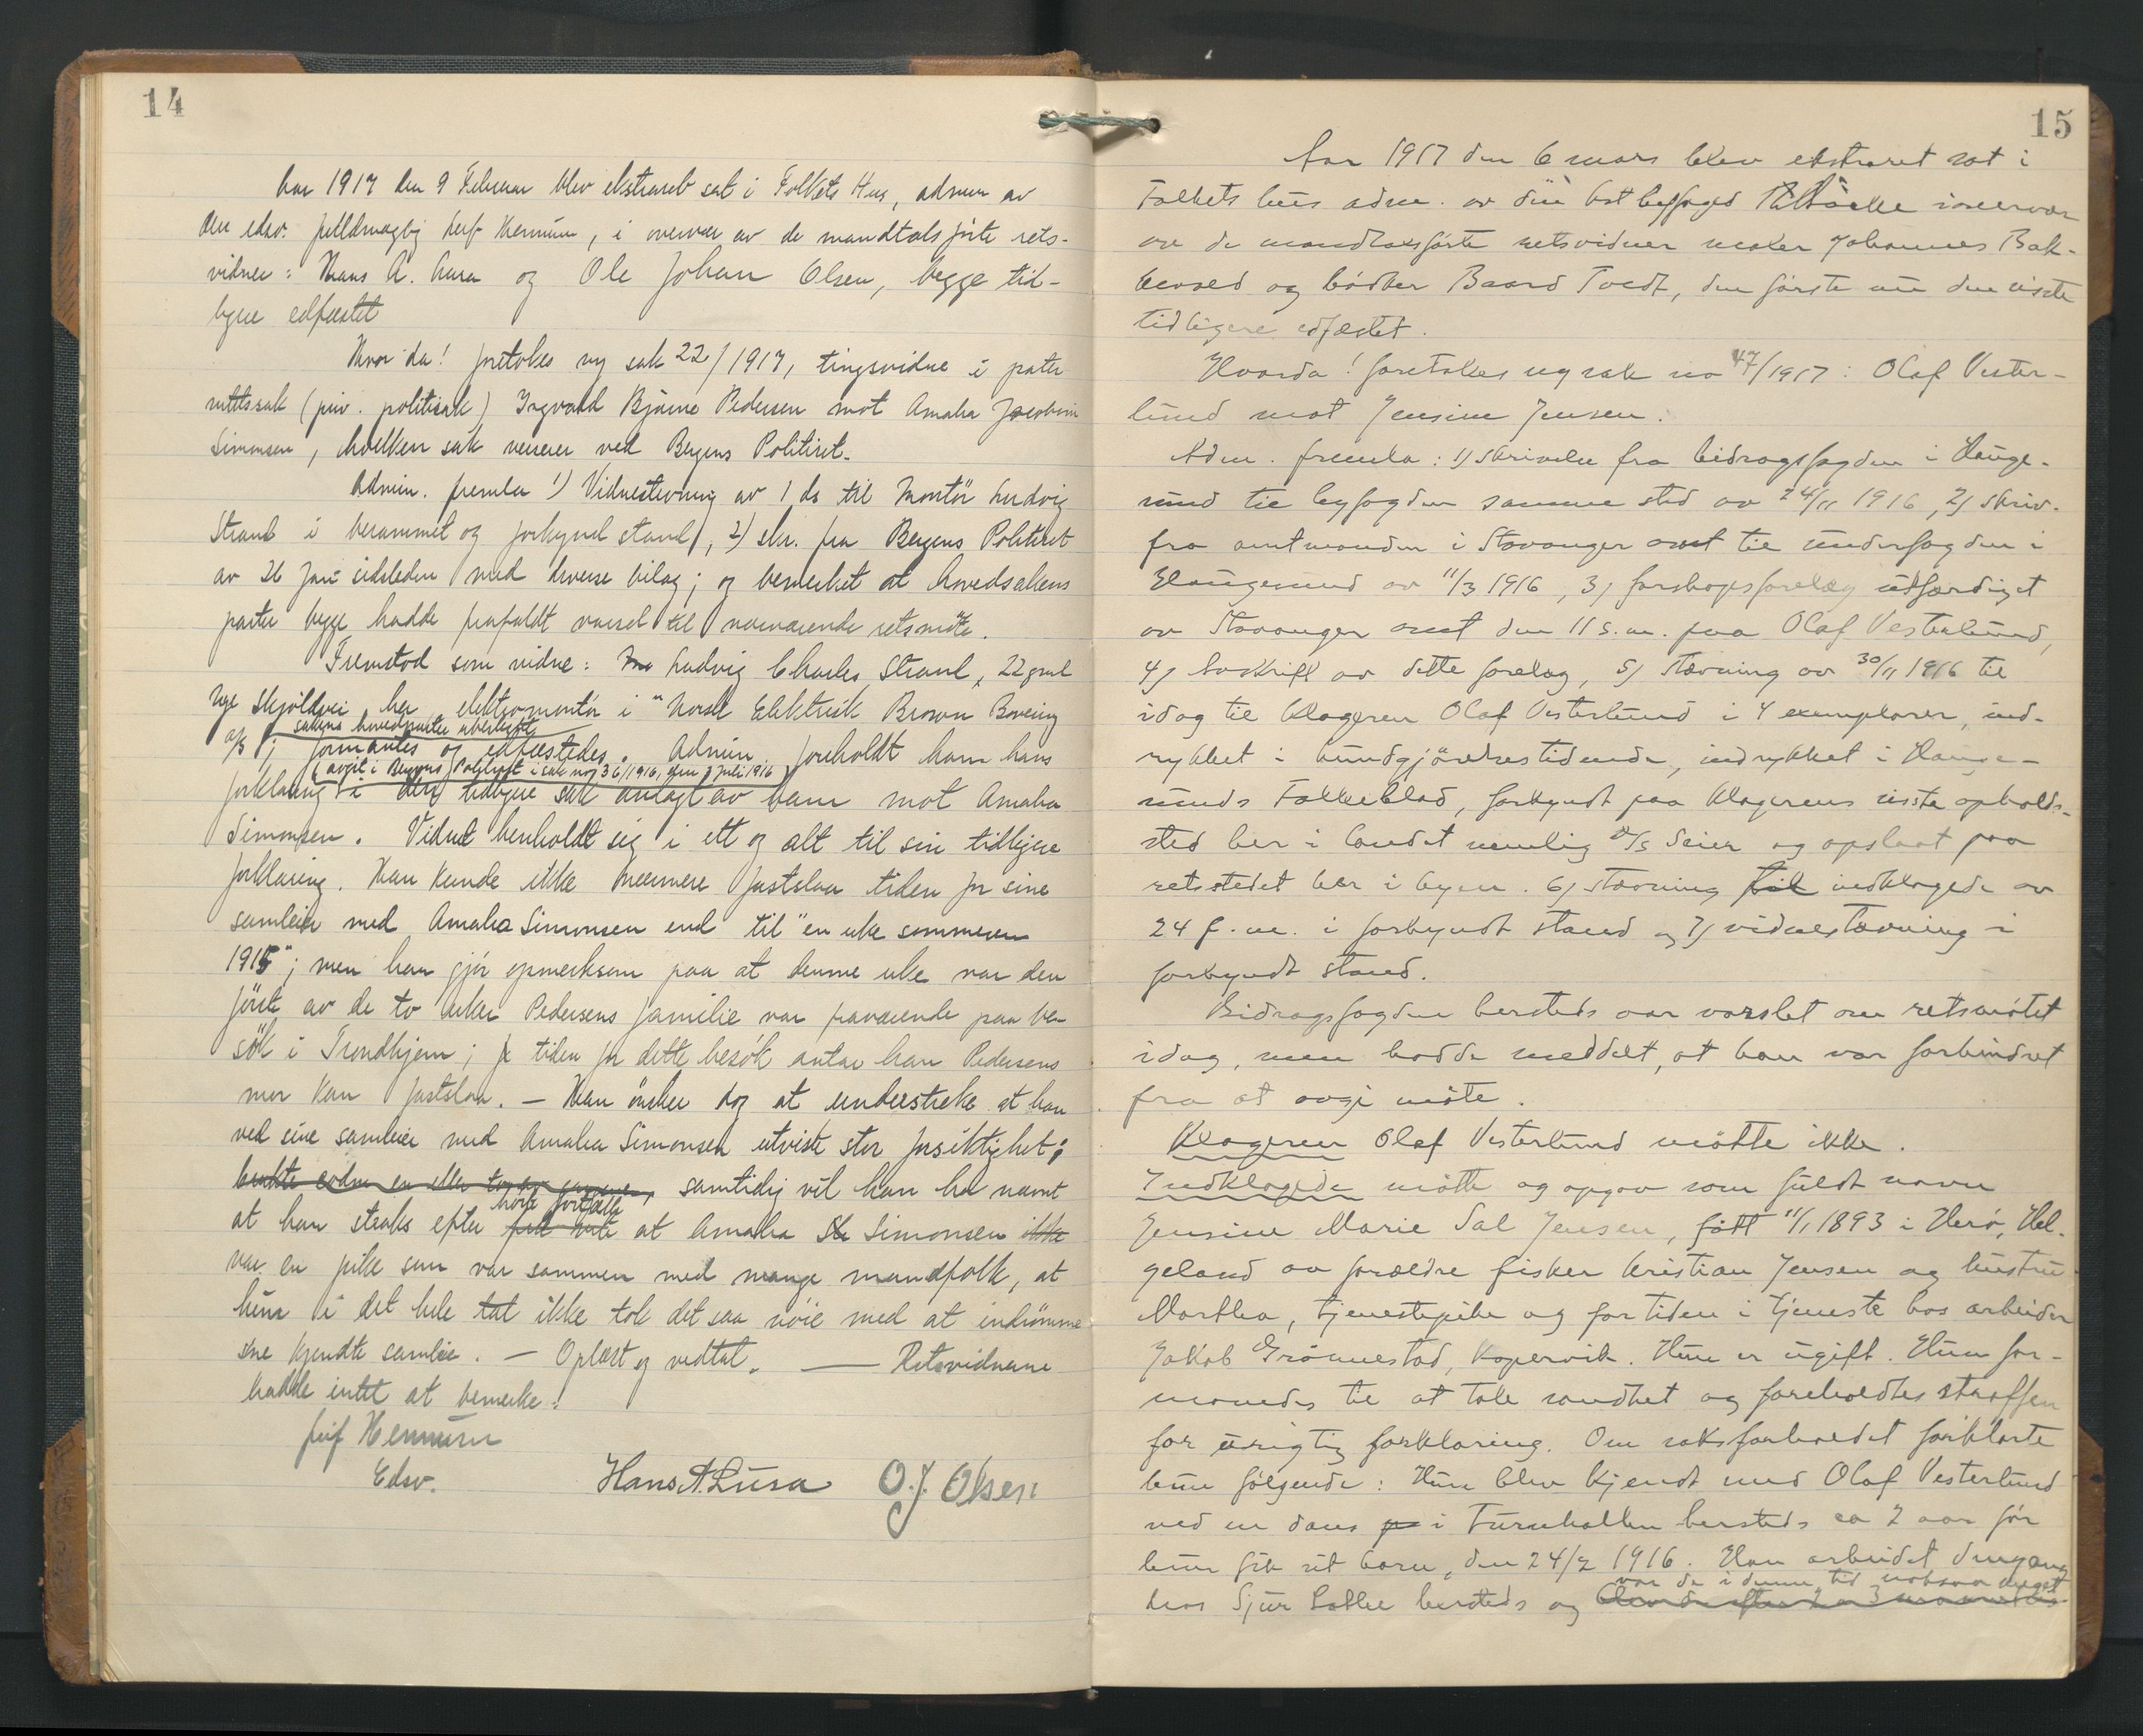 14
Aar 1917 den 9 Februar blev ekstraret sat i Folkets Hus, admin av
den edsv. fuldmægtig Leif Hermann, i overvær av de mandtalsførte rets-
vidner: Hans A. Lura og Ole Johan Olsen, begge tid-
ligere edfæstet
Hvor da! foretokes ny sak 22/1917, tingsvidne i pater
nitetssak (priv. politisak) Ingvald Bjarne Pedersen mot Amalia Jacobine
Simonsen, hvilken sak verserer ved Bergens Politiret.
Admin. fremla 1) Vidnestevning av 1 ds til Montør Ludvig
Strand i berammet og forkyndt stand, 2) skr. fra Bergens Politiret
av 26 jan sidstleden med diverse bilag; og bemerket at hovedsakens
parter begge hadde frafaldt varsel til nærværende retsmøte.
Fremstod som vidne: Ludvig Charles Strand, 22 gml
Nye Skjoldvei her, elektromontør i "Norsk Elektrisk Brown Boveri
sakens hovedparter ubeslegtet
a/s; formantes og edfæstedes. Admin foreholdt ham hans
avgit i Bergens Politiret i sak no 36/1916, den 7 juli 1916
forklaring i den tidligere sak anlagt av ham mot Amalia
Simonsen. Vidnet henholdt sig i ett og alt til sin tidligere
forklaring. Han kunde ikke nærmere fastslaa tiden for sine
samleier med Amalia Simonsen end til "en uke sommeren
1915"; men han gjör opmerksom paa at denne uke var den
förste av de to uker Pedersens familie var fraværende paa be-
sök i Trondhjem; tiden for dette besök antar han Pedersens
mor kan fastslaa. — Han ønsker dog at understreke at han
ved sine samleier med Amalia Simonsen utviste stor forsiktighet;
samtidig vil han ha nævnt
hørte fortælle
at han straks efter fik vite at Amalia Simonsen ikke
var en pike som var sammen med mange mandfolk, at
hun i det hele tat ikke tok det saa nøie med at indrømme
sine kjendte samleie. — Oplæst og vedtat. — Retsvidnene
hadde intet at bemerke.
Leif Hermann
Edsv.
Hans A. Lura O.J. Olsen
15
Aar 1917 den 6 mars blev ekstraret sat i
Folkets hus adm. av den kst byfoged i overvær
av de mandtalsførte retsvidner maler Johannes Bak-
kevold og bødker Baard Tvedt, den første nu den siste
tidligere edfæstet.
Hvorda! foretokes ny sak no 47/1917: Olaf Vester-
lund mot Jensine Jensen.
Adm. fremla: 1) skrivelse fra bidragsfogden i Hauge-
sund til byfogden samme sted av 24/11 1916, 2) skriv.
fra amtmanden i Stavanger amt til underfogden i
Haugesund av 11/3 1916, 3) farskapsforelæg utfærdiget
av Stavanger amt den 11 s.m. paa Olaf Vesterlund,
4) avskrift av dette forelæg, 5) stævning av 30/11 1916 til
idag til klageren Olaf Vesterlund i 4 exemplarer, ind-
rykket i kundgjørelsestidende, indrykket i Hauge-
sunds Folkeblad, forkyndt paa klagerens siste opholds-
sted her i landet nemlig D/S Seier og opslaat paa
retsstedet her i byen. 6) stævning til indklagede av
24 f.m. i forkyndt stand og 7) vidnestævning i
forkyndt stand.
Bidragsfogden hersteds var varslet om retsmøtet
idag, men hadde meddelt, at han var forhindret
fra at avgi møte.
Klageren Olaf Vesterlund møtte ikke.
Indklagede møtte og opgav som fuldt navn
Jensine Marie Sal Jensen, født 11/1 1893 i Herø, Hel-
geland av forældre fisker Kristian Jensen og hustru
Martha, tjenestepike og for tiden i tjeneste hos arbeider
Jakob Grønnestad, Kopervik. Hun er ugift. Hun for-
manedes til at tale sandhet og foreholdtes straffen
for urigtig forklaring. Om saksforholdet forklarte
hun følgende: Hun blev kjendt med Olaf Vesterlund
ved en dans i Turnhallen hersteds ca 2 aar før
hun fik sit barn, den 24/2 1916. Han arbeidet dengang
var da i denne tid noksaa meget
hos Sjur Lothe hersteds og